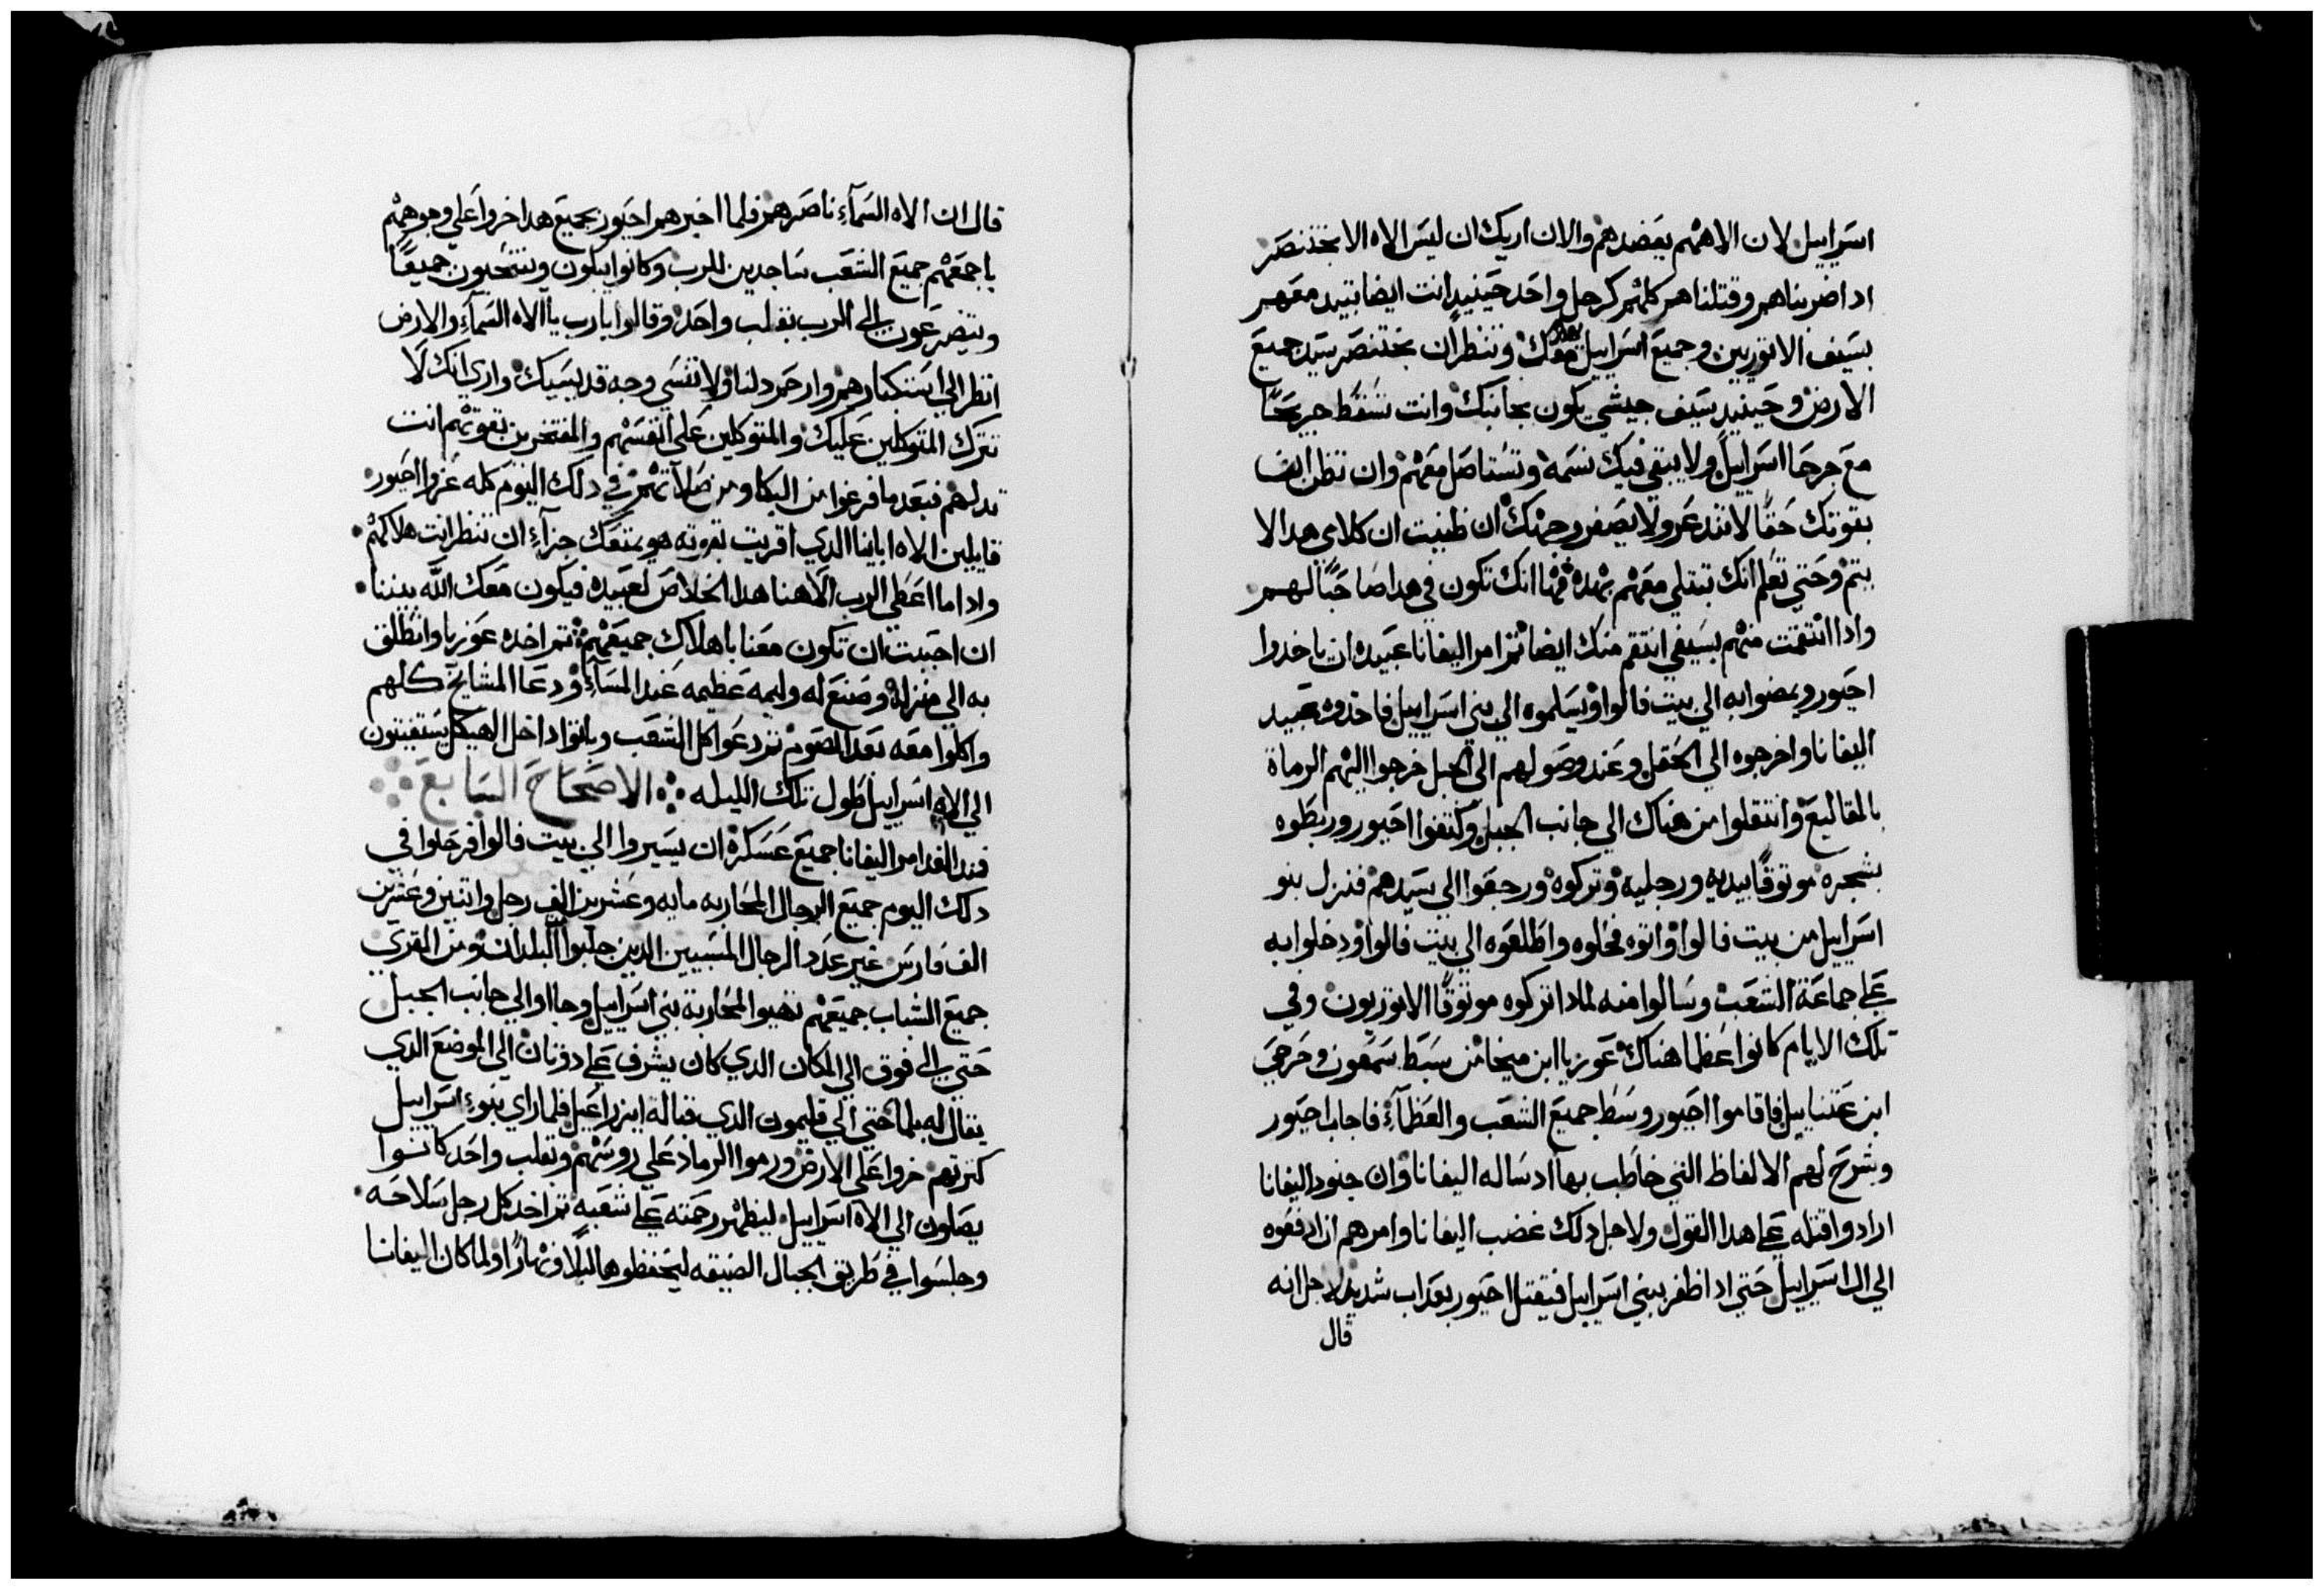 اسراييل لان الاههم يعضدهم والان اريك ان ليس الاه الا بختنصر
اداضربناهم وقتلناهم كلهم كرجل واحد حينيد انت ايضا تبيد معهم
بسيف الاتوريين وجميع اسراييل معك وتنظر ان بختنصر سيد جميع
الارض وحينيد سيف جيشي يكون بجانبك وانت تسقط جريحًا
مع جرحا اسراييل ولا يبقي فيك نسمه وتستاصل معهم وان تظن ان
بقوتك حقًا لا تندعر ولا يصفر وجهك ان ظنيت ان كلامي هدا لا
يتم وحتي تعلم انك تبتلي معهم بهده فهنا انك تكون في هدا صاحبًا لهم
وادا انتقمت منهم بسيفي انتقم منك ايضا تم امر اليفانا عبيده ان ياخدوا
احيور ويمضوا به الي بيت فالوا ويسلموه الي بني اسراييل فاخدوه عبيد
اليفانا واخرجوه الي الحقل وعند وصولهم الي الجبل خرجوا اليهم الرماة
بالمقاليع وانتقلوا من هناك الي جانب الجبل وكتفوا احيور وربطوه
بشجره موتوقًا بيديه ورجليه وتركوه ورجعوا الي سيدهم فنزل بنو
اسراييل من بيت فالوا واتوه فحلوه واطلعوه الي بيت فالوا ودخلوا به
علي جماعة الشعب وسالوا منه لمادا تركوه موتوقًا الاتوريون وفي
تلك الايام كانوا عظما هناك عوزيا ابن ميخا من سبط سمعون وحرمي
ابن عتنياييل فاقاموا احيور وسط جميع الشعب والعظمآء فاجاب احيور
وشرح لهم الالفاظ التي خاطب بها اد ساله اليفانا وان جنود اليفانا
ارادوا قتله علي هدا القول ولاجل دلك غضب اليفانا وامرهم ان ادفعوه
الي ال اسراييل حتي ادا ظفر ببني اسراييل فيقتل احيور بعداب شديد لاجل انه
قال
قال ان الاه السمآء ناصرهم فلما اخبرهم احيور بجميع هدا خروا علي وجوههم
باجمعهم جميع الشعب ساجدين للرب وكانوا يبكون وينتحبون جميعًا
ويتضرعون الي الرب بقلب واحد وقالوا يارب يا الاه السمآء والارض
انظر الي استكبارهم وارحم دلنا ولا تنسي وجه قديسيك واري انك لا
تترك المتوكلين عليك والمتوكلين علي انفسهم والمفتخرين بقوتهم انت
تدلهم فبعد ما فرغوا من البكا ومن صلاتهم في دلك اليوم كله عزوا احيور
قايلين الاه اباينا الدي اقريت بقوته هو يمنحك جزآء ان تنظر انت هلاكهم
وادا ما اعطي الرب الاهنا هدا الخلاص لعبيده فيكون معك الله بيننا
ان احببت ان تكون معنا باهلاك جميعهم تم اخده عوزيا وانطلق
به الي منزله وصنع له وليمه عظيمه عند المسآء ودعا المشايخ كلهم
واكلوا معه بعد الصوم تم دعوا كل الشعب وباتوا داخل الهيكل يستغيتون
الي الاه اسراييل طول تلك الليله الاصحاح السابع
فمند الغد امر اليفانا جميع عسكره ان يسيروا الي بيت فالوا فرحلوا في
دلك اليوم جميع الرجال المحاربه مايه وعشرين الف رجل واتنين وعشرين
الف فارس غير عدد الرجال المسبيين الدين جلبوا البلدان ومن القري
جميع الشباب جميعهم تهيوا لمحاربة بني اسراييل وجااوا الي جانب الجبل
حتي الي فوق الي المكان الدي كان يشرف علي دوتان الي الموضع الدي
يقال له بلما حتي الي قليمون الدي قبالة ايزراعيل فلما راي بنوء اسراييل
كترتهم خروا علي الارض ورموا الرماد علي روسهم وبقلب واحد كانوا
يصلون الي الاه اسراييل ليظهر رحمته علي شعبه تم اخد كل رجل سلاحه
وجلسوا في طريق الجبال الضيقه ليحفظوها ليلًا ونهارًا ولما كان اليفانا